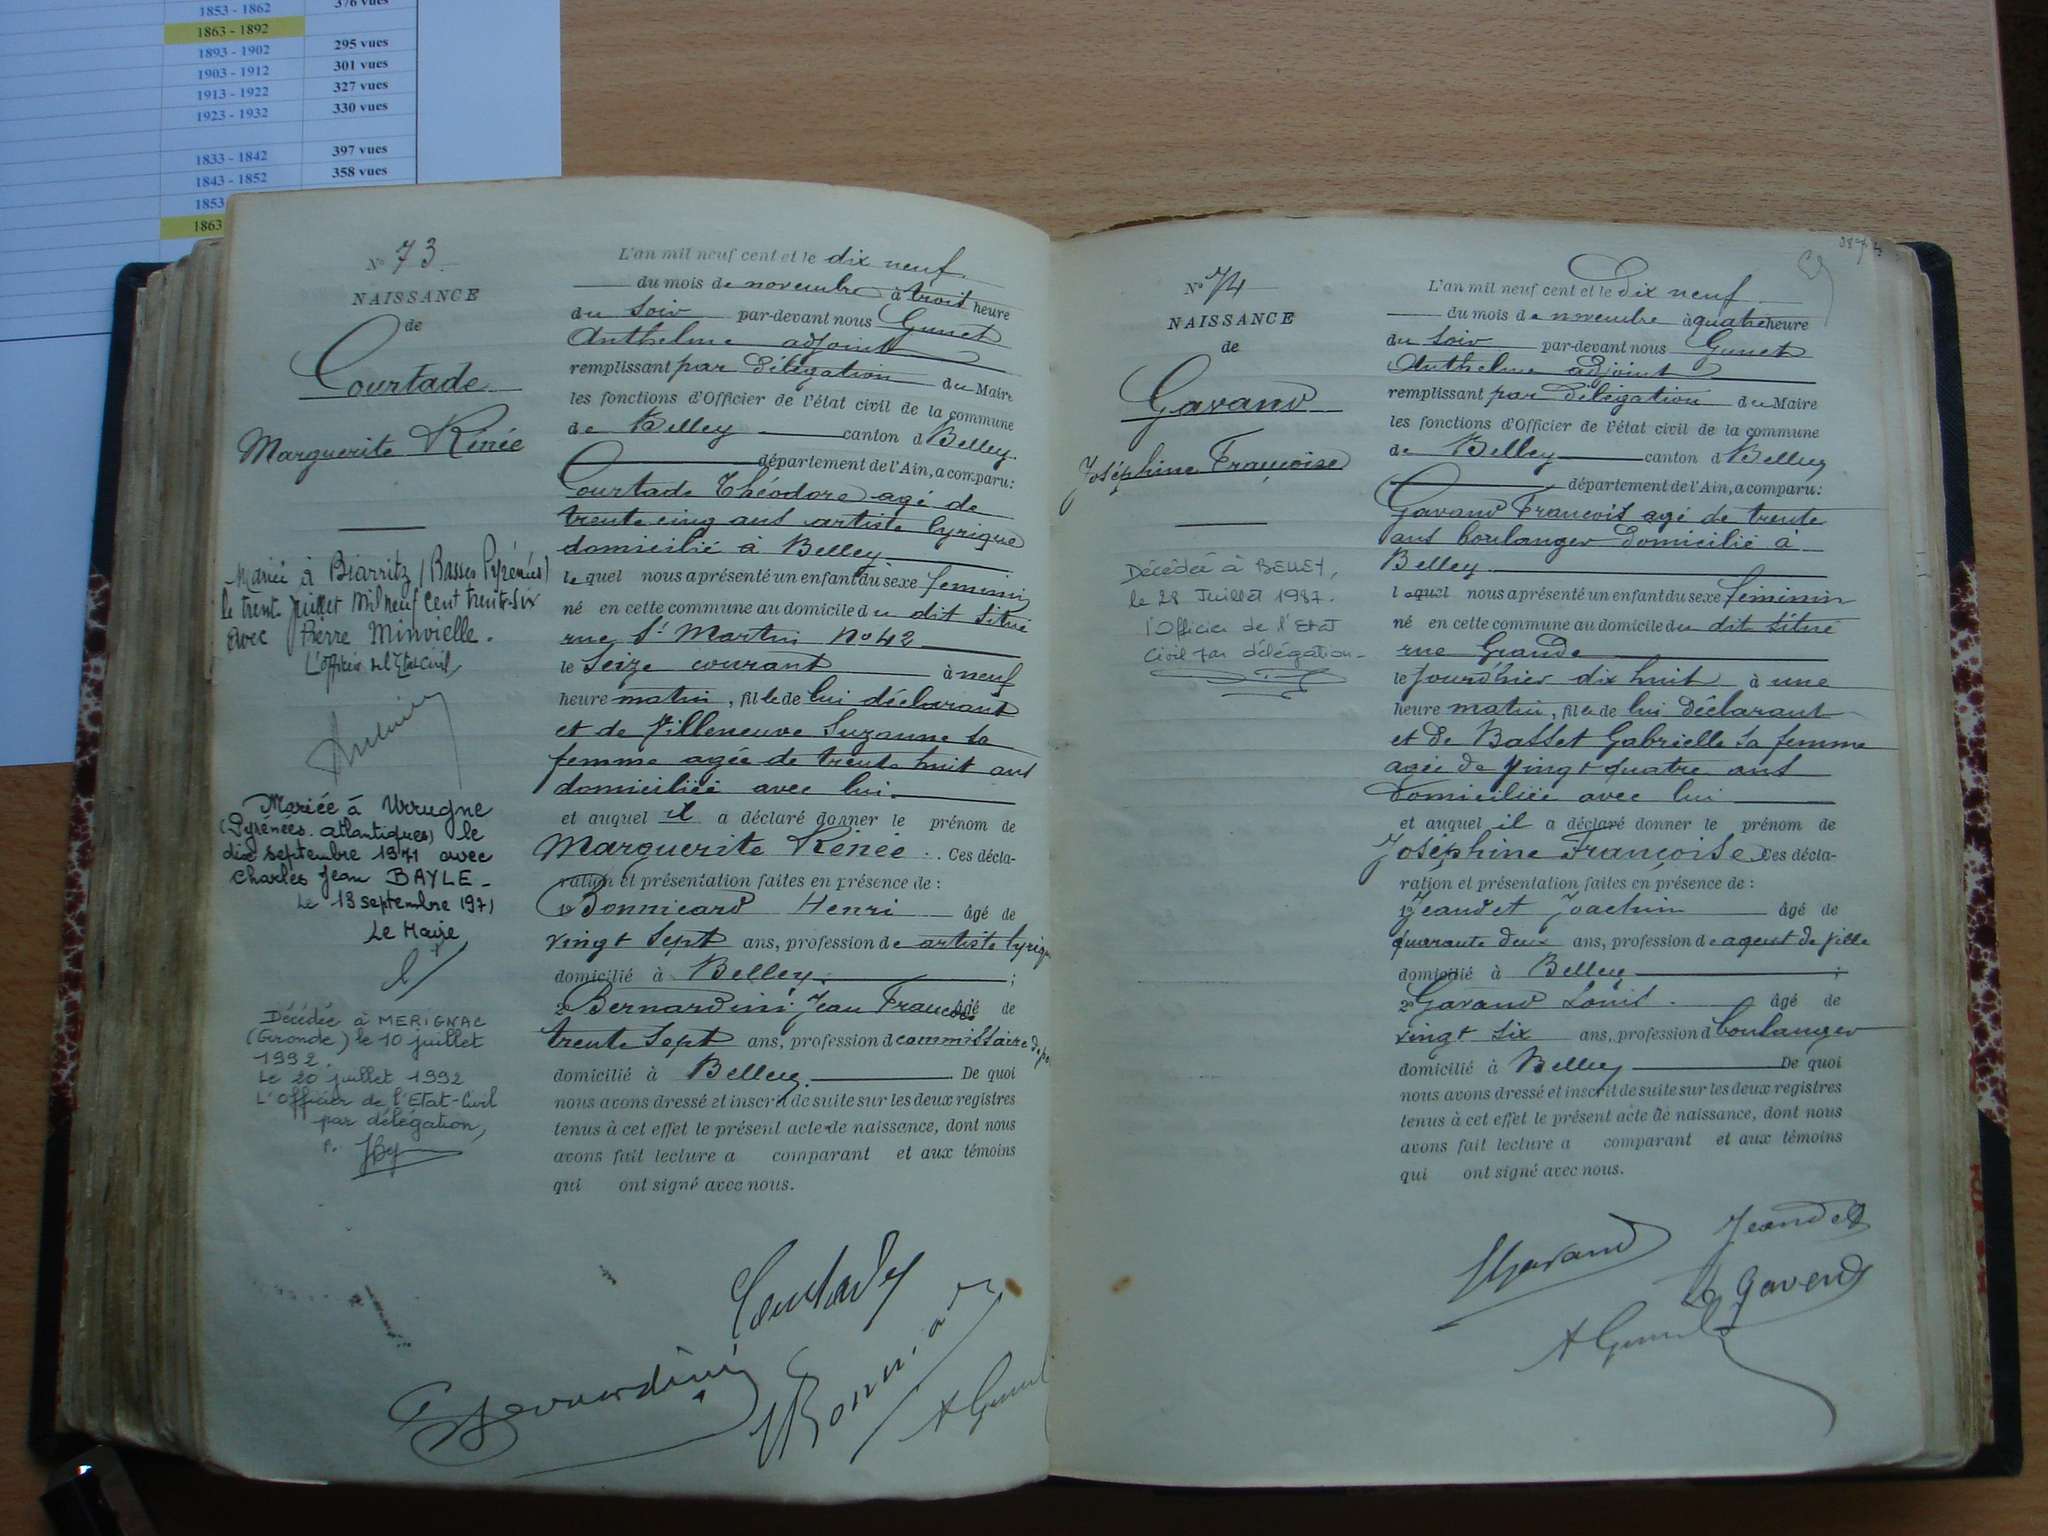 1853 - 1862 376 vues
1863 - 1892
1893 - 1902 295 vues
1903 - 1912 301 vues
1913 - 1922 327 vues
1923 - 1932 330 vues
1833 - 1842 397 vues
1843 - 1852 358 vues
1853
1863
N° 73
NAISSANCE
de
Courtade
Marguerite Rénée
Mariée à Biarritz (Basses Pyrénées)
le trente juillet mil neuf cent trente-six
avec Pierre Minvielle.
L'officier de l'Etat Civil,
Mariée à Urrugne
(Pyrénées-atlantiques) le
dix septembre 1971 avec
Charles Jean BAYLE -
Le 13 septembre 1971
Le Maire
Décédée à MERIGNAC
(Gironde) le 10 juillet
1992.
Le 20 juillet 1992
L'Officier de l'Etat-Civil
par délégation,
L'an mil neuf cent et le dix neuf
du mois de novembre à trois heure
du soir par-devant nous Gunet
Anthelme adjoint
remplissant par délégation du Maire
les fonctions d'Officier de l'état civil de la commune
de Belley canton d Belley
département de l'Ain, a comparu:
Courtade Théodore agé de
trente cinq ans artiste lyrique
domicilié à Belley
le quel nous a présenté un enfant du sexe feminin
né en cette commune au domicile du dit situé
rue St Martin No 42
le Seize courant à neuf
heure matin, fille de lui déclarant
et de Villeneuve Suzanne sa
femme agée de trente huit ans
domiciliée avec lui
et auquel il a déclaré donner le prénom de
Marguerite Rénée. Ces décla-
ration et présentation faites en présence de :
1° Bonnicard Henri âgé de
vingt sept ans, profession de artiste lyriq
domicilié à Belley ;
2° Bernardini Jean Francois âgé de
trente sept ans, profession d commissaire de po
domicilié à Belley. De quoi
nous avons dressé et inscrit de suite sur les deux registres
tenus à cet effet le présent acte de naissance, dont nous
avons fait lecture a comparant et aux témoins
qui ont signé avec nous.
Courtade
Bernardini
A Gunet
N° 74
NAISSANCE
de
Gavand
Joséphine Françoise
Décédée à BELLEY,
le 28 Juillet 1987.
l'Officier de l'Etat
Civil par délégation
L'an mil neuf cent et le Dix neuf
du mois de novembre à quatre heure
du soir par-devant nous Gunet
Anthelme adjoint
remplissant par délégation du Maire
les fonctions d'Officier de l'état civil de la commune
de Belley canton d Belley
département de l'Ain, a comparu:
Gavand François agé de trente
ans boulanger domicilié à
Belley
lequel nous a présenté un enfant du sexe feminin
né en cette commune au domicile du dit situé
rue Grande
le jourd'hier dix huit à une
heure matin, fille de lui Déclarant
et de Basset Gabrielle sa femme
agée de Vingt quatre ans
Domiciliée avec lui
et auquel il a déclaré donner le prénom de
Joséphine Françoise Ces décla-
ration et présentation faites en présence de :
1° Jeandet Joachin âgé de
quarante deux ans, profession d e agent de ville
domicilié à Belley ;
2° Gavand Louis âgé de
vingt six ans, profession d boulanger
domicilié à Belley De quoi
nous avons dressé et inscrit de suite sur les deux registres
tenus à cet effet le présent acte de naissance, dont nous
avons fait lecture a comparant et aux témoins
qui ont signé avec nous.
Gavand Jeandet
L Gavend
A Gunet